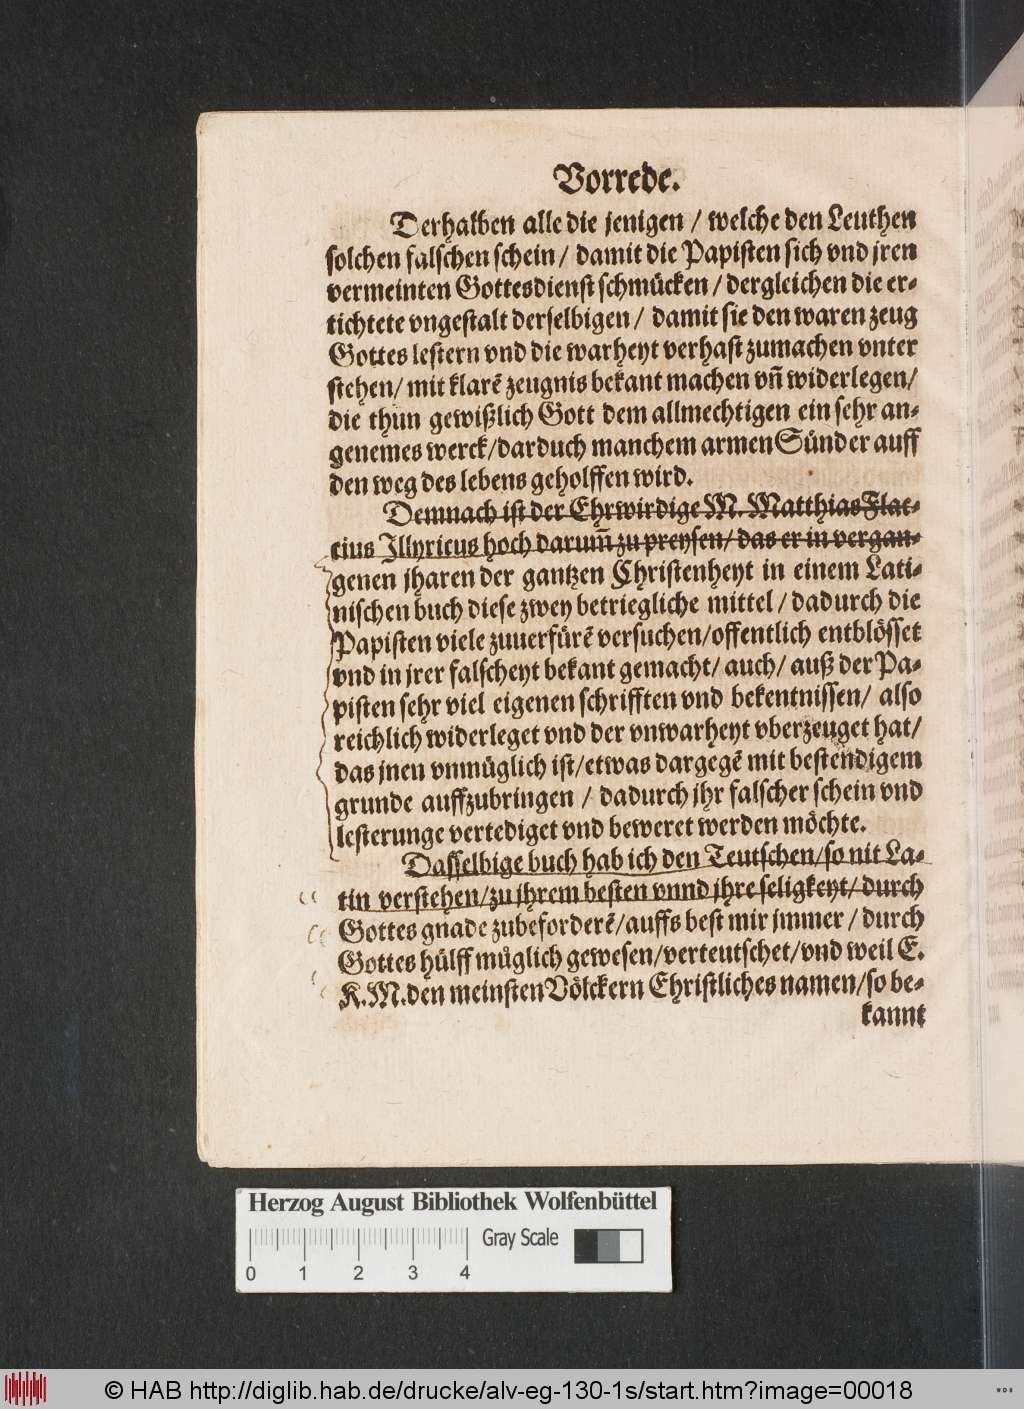 Vorrede.
Derhalben alle die jenigen / welche den Leuthen
solchen falschen schein / damit die Papisten sich vnd jren
vermeinten Gottesdienst schmücken / dergleichen die er-
tichtete vngestalt derselbigen / damit sie den waren zeug
Gottes lestern vnd die warheyt verhast zumachen vnter
stehen / mit klarē zeugnis bekant machen vñ widerlegen /
die thun gewißlich Gott dem allmechtigen ein sehr an-
genemes werck / darduch manchem armen Sünder auff
den weg des lebens geholffen wird.
Demnach ist der Ehrwirdige M. Matthias Flac-
cius Illyricus hoch darum̃ zu preysen / das er in vergan-
genen jharen der gantzen Christenheyt in einem Lati-
nischen buch diese zwey betriegliche mittel / dadurch die
Papisten viele zuuerfürē versuchen / offentlich entblösset
vnd in jrer falscheyt bekant gemacht / auch / auß der Pa-
pisten sehr viel eigenen schrifften vnd bekentnissen / also
reichlich widerleget vnd der vnwarheyt vberzeuget hat /
das jnen vnmüglich ist / etwas dargegē mit bestendigem
grunde auffzubringen / dadurch jhr falscher schein vnd
lesterunge vertediget vnd beweret werden möchte.
Dasselbige buch hab ich den Teutschen / so nit La-
tin verstehen / zu jhrem besten vnnd jhre seligkeyt / durch
Gottes gnade zubeforderē / auffs best mir jmmer / durch
Gottes hülff müglich gewesen / verteutschet / vnd weil E.
K. M. den meinsten Völckern Christliches namen / so be-
kannt
Herzog August Bibliothek Wolfenbüttel
Gray Scale
0 1 2 3 4
© HAB http://diglib.hab.de/drucke/alv-eg-130-1s/start.htm?image=00018